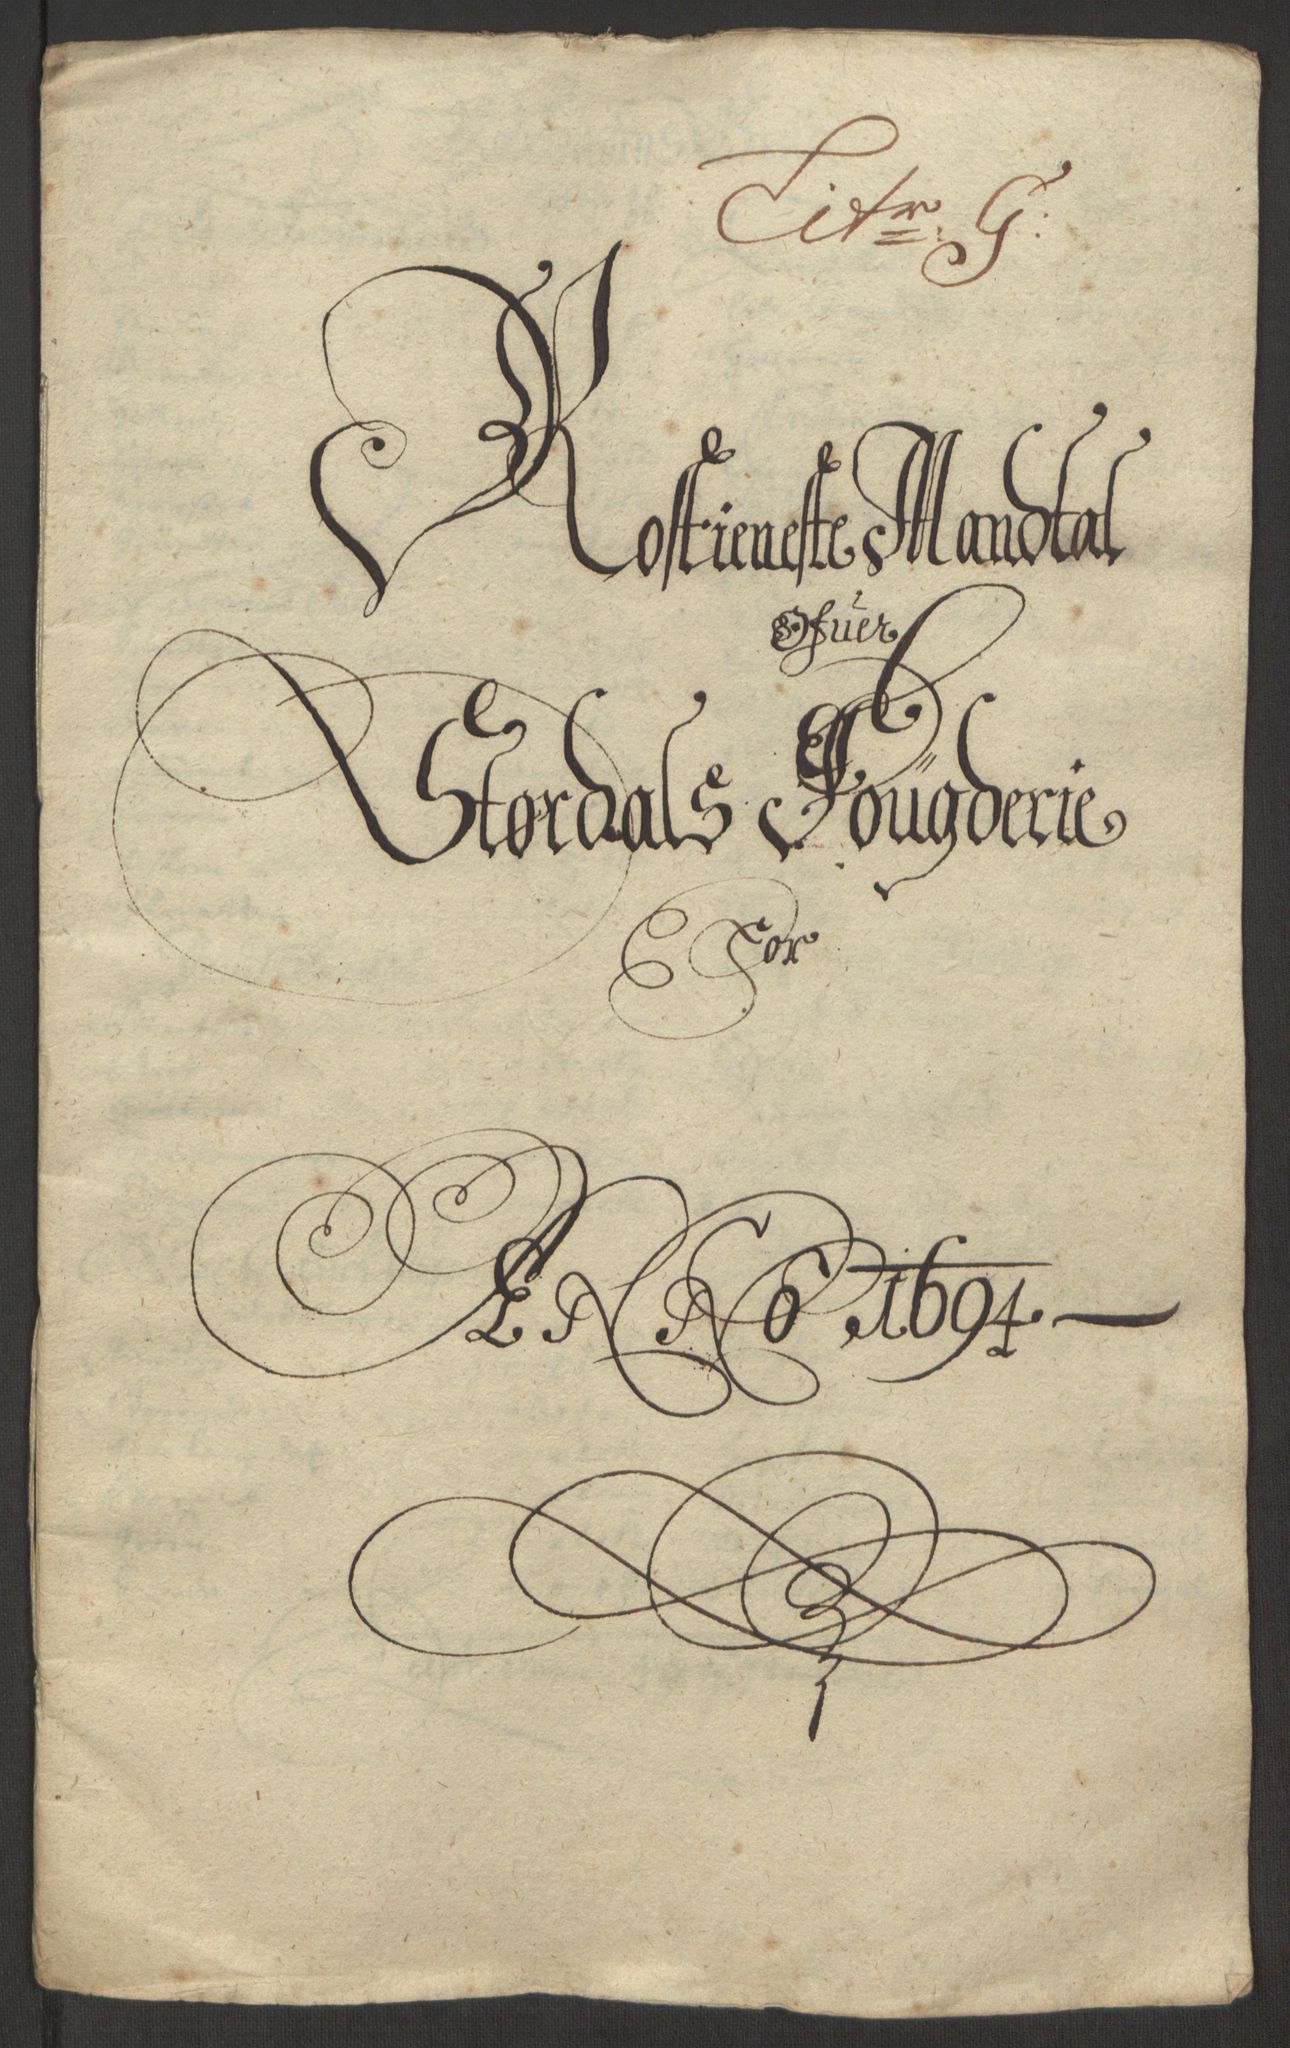 Litr. G:
Rostieneste Mandtal
Ofuer
Størdals Fougderie
For
ANNO 1694